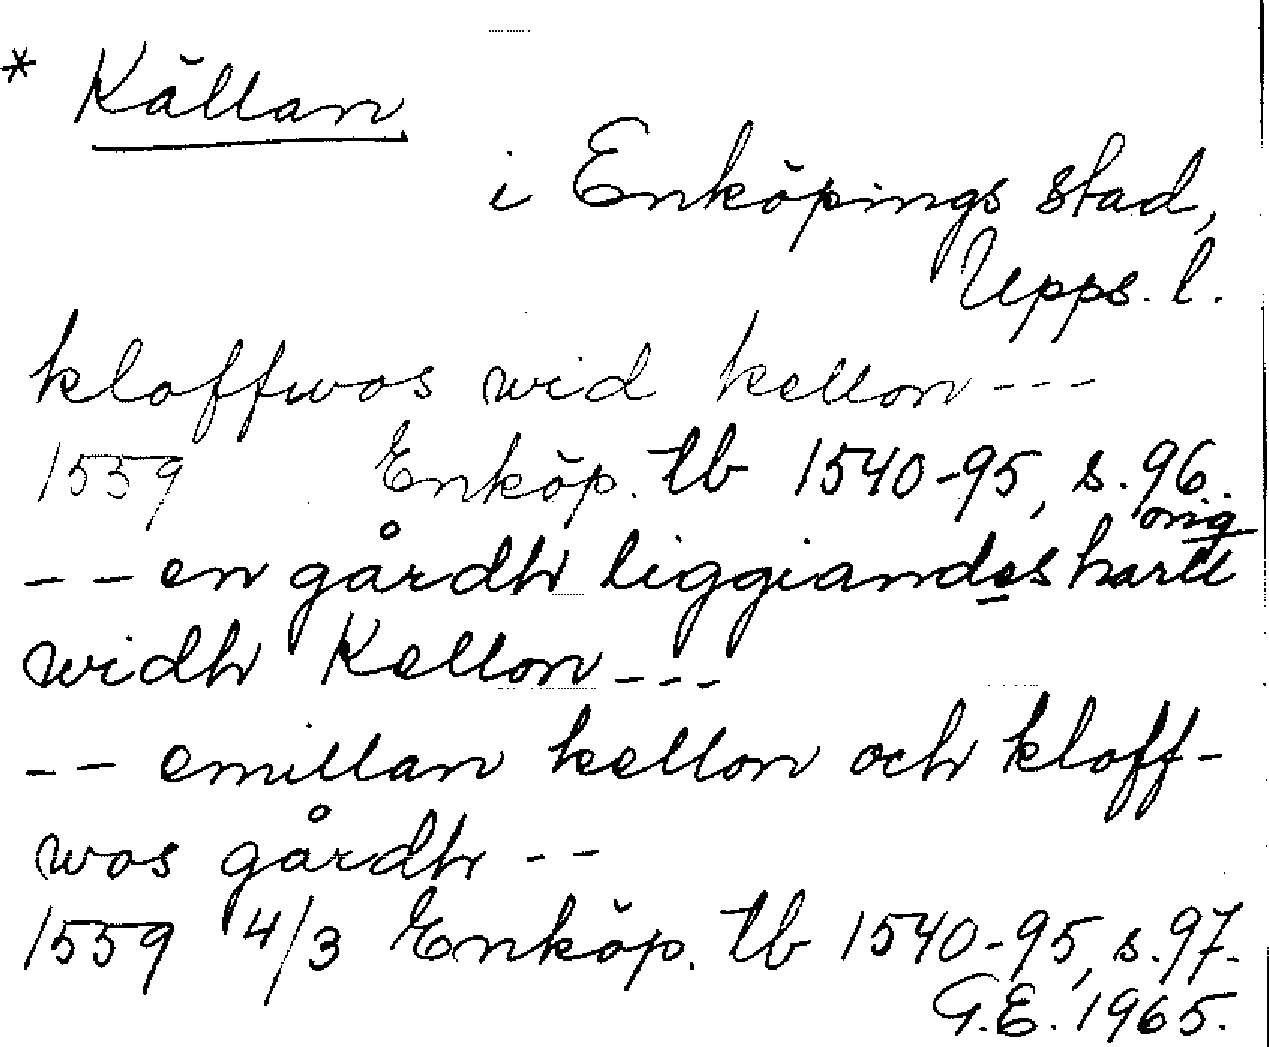 * Källan
i Enköpings stad,
Upps. l.
kloffwos wid kellon ---
1559 Enköp. tb 1540-95, s. 96.
orig
-- en gårdh liggiandes hartt
widh Kellon ---
-- emillan kellon och kloff-
wos gårdh --
1559 4/3 Enköp. tb 1540-95, s. 97.
G.E. 1965.